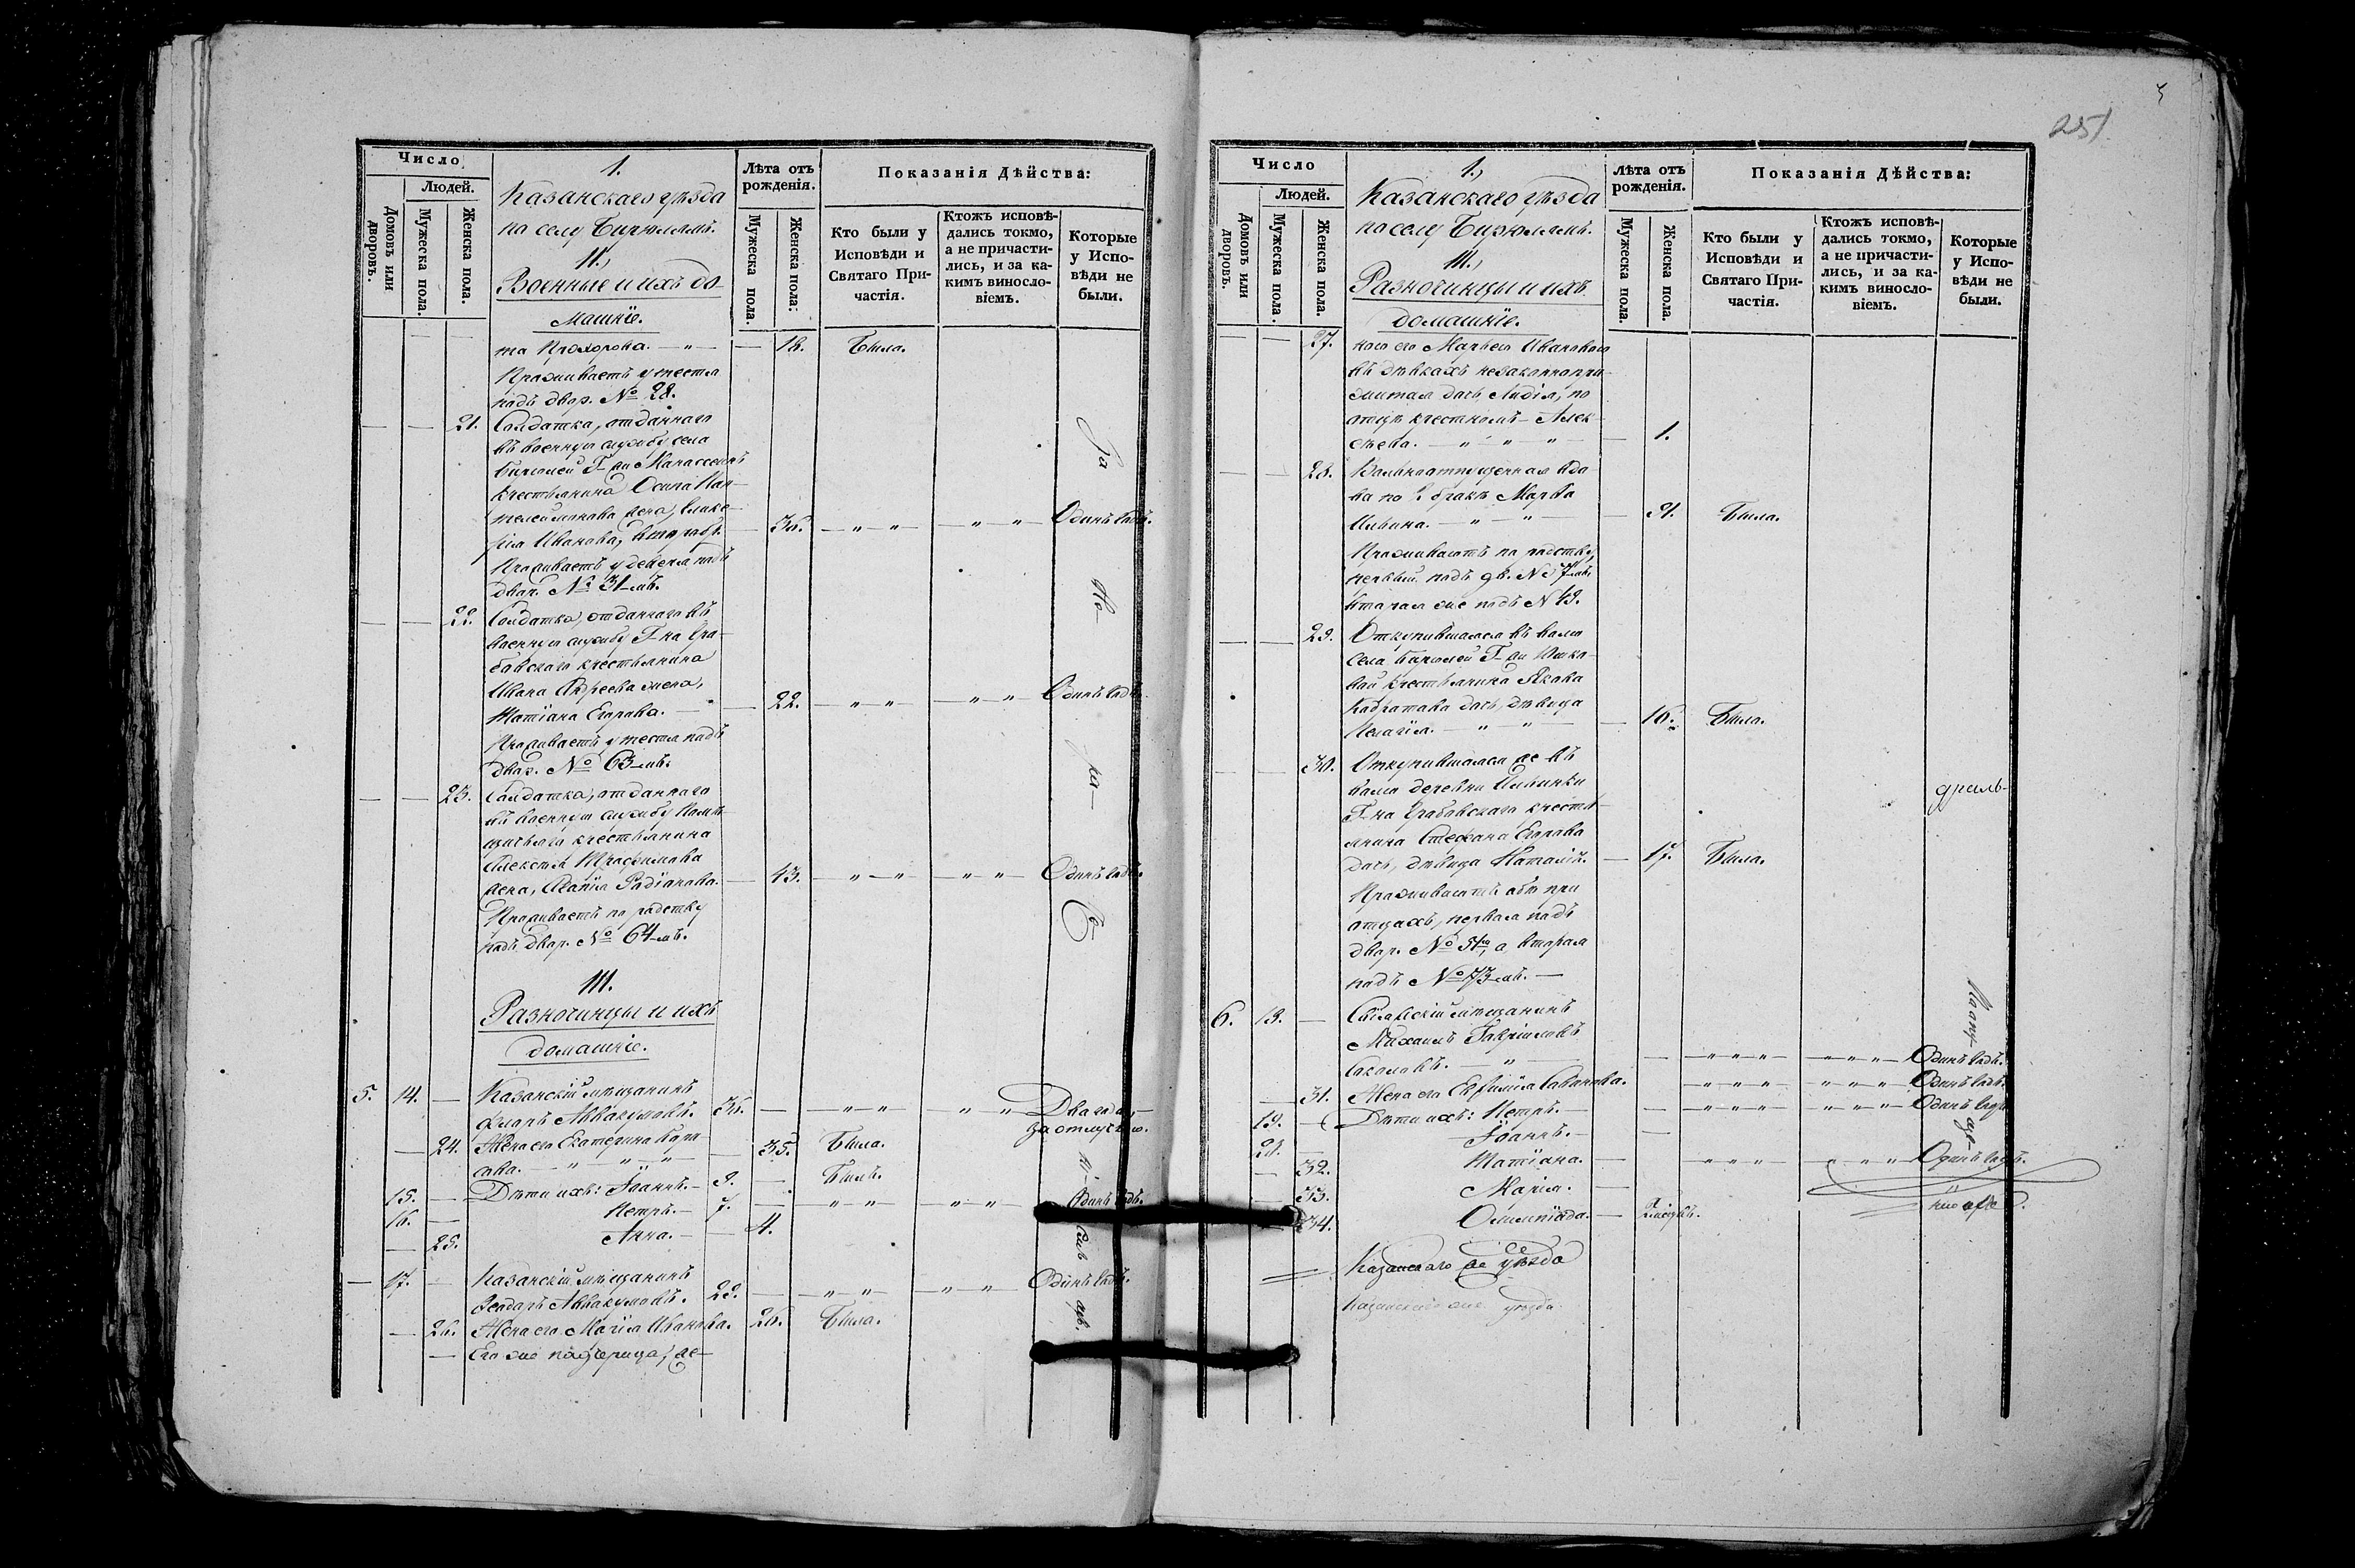 251
Число
Людей.
Домовъ или дворовъ.
Мужеска пола.
Женска пола.
1.
Казанскаго уѣзда
по селу Бирюлямъ.
II.,
Военные и ихъ до-
машніе.
Лѣта отъ рожденія.
Мужеска пола.
Женска пола:
Показанія Дѣйства:
Кто были у Исповѣди и Святаго При-частія.
Ктожъ исповѣ-дались токмо, а не причасти-лись, и за ка-кимъ винносло-віемъ.
Которые у Испо-вѣди не были.
та Прохорова. — 18. Была.
Проживаетъ у тестя
подъ двор. № 28.
21. Солдатка, отданнаго
въ военную службу села
Бирюлей Г-жи Манассеинъ
крестьянина Осипа Пан-
телеймонова жена, Глике-
рія Иванова, — 36. Одинъ годъ.
Проживаетъ у деверя подъ
двор. № 31-мъ.
22. Солдатка, отданнаго въ
военную службу Г-на Гра-
бовскаго крестьянина
Ивана Андреева жена,
Татіана Егорова. — 22. Одинъ годъ.
Проживаетъ у тестя подъ
двор. № 63-мъ.
23. Солдатка, отданнаго
въ военную службу
крестьянина
Алексѣя Трофимова
жена, Агапія Родіонова. — 43. Одинъ годъ.
Проживаетъ по родству
подъ двор. № 64-мъ.
III.
Разночинцы и ихъ
домашніе.
5. 14. — Казанскій мѣщанинъ
Флоръ Аввакумовъ. 36. — Два года,
за отлучкою.
— 24. Жена его Екатерина
— 35. Была.
15. — Дѣти ихъ: Іоаннъ. — 9. — Былъ.
16. — Петръ. — 7. — Одинъ годъ.
— 25. Анна. — 4.
— 17. — Казанскій мѣщанинъ
Ѳеодоръ Аввакумовъ. 29. — Одинъ годъ.
— 26. Жена его Марія Иванова. 26. Была.
— Его же падчерица, же-
Число
Людей.
Домовъ или дворовъ.
Мужеска пола.
Женска пола.
1.,
Казанскаго уѣзда
по селу Бирюлямъ.
III.,
Разночинцы и ихъ
домашніе.
Лѣта отъ рожденія.
Мужеска пола.
Женска пола.
Показанія Дѣйства:
Кто были у Исповѣди и Святаго При-частія.
Ктожъ исповѣ-дались токмо, а не причасти-лись, и за ка-кимъ винносло-віемъ.
Которые у Испо-вѣди не были.
— — 27. ною его Марьею Ивановою
въ дѣвкахъ незаконнопри-
житая дочь Лидія, по
отцѣ крестномъ — Алек-
сѣева. — 1.
— — 28. Вольноотпущенная вдо-
ва по браку Марѳа
Ильина. — Была.
Проживаютъ по родству,
первый подъ дв. № 7-мъ,
вторая же подъ № 49.
— — 29. Откупившаяся въ волю
села Бирюлей Г-жи
крестьянина Якова
дочь, дѣвица
Пелагія. — 16. Была.
— — 30. Откупившаяся же въ
волю деревни Ильинки
Г-на Грабовскаго кресть-
янина Стефана Егорова
дочь, дѣвица Наталія. — 17. Была.
Проживаютъ обѣ при
отцахъ, первая подъ
двор. № 51-мъ, а вторая
подъ № 73-мъ. —
6. 18. — мѣщанинъ
Михаилъ Гавріиловъ
Соколовъ. — Одинъ годъ.
— 31. Жена его Евѳимія — Одинъ годъ.
19. — Дѣти ихъ: Петръ. — Одинъ годъ.
20. — Іоаннъ. —
— 32. Татіана. — Одинъ годъ.
— 33. Марія. —
— 34. Олимпіада. —
Казанскаго же уѣзда
Казанскаго же уѣзда